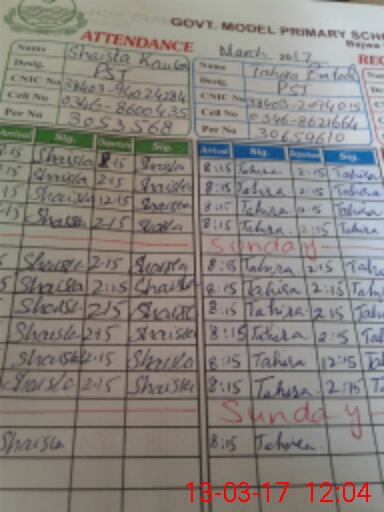 GOVT. MODEL PRIMARY SCH
ATTENDANCE
March 2017
Name Shaista
Desig. PST
CNIC No
Cell No 0346-8600435
Per No 3053568
Name Tahira
Desig. PST
CNIC No
Cell No 0346-8621664
Per No 30659610
Arrival Sig. Departure Sig.
Arrival Sig. Departure Sig.
:15 Shaista 2:15 Shaista 8:15 Tahira 2:15 Tahira
:15 Shaista 2:15 Shaista 8:15 Tahira 2:15 Tahira
:15 Shaista 12:15 Shaista 8:15 Tahira Tahira
:15 Shaista 2:15 Shaista 8:15 Tahira 2:15 Tahira
Sunday
Shaista 2:15 Shaista 8:15 Tahira 2:15 Tah
Shaista 2:15 Shaista 8:15 Tahira 2:15 Tah
Shaista 2:15 Shaista 8:15 Tahira 2:15 Tah
Shaista 2:15 Shaista 8:15 Tahira 2:15 Tah
Shaista 2:15 Shaista 8:15 Tahira 12:15 Tah
Shaista 2:15 Shaista 8:15 Tahira 2:15 Ta
Sunday
Shaista 8:15 Tahira
13-03-17 12:04